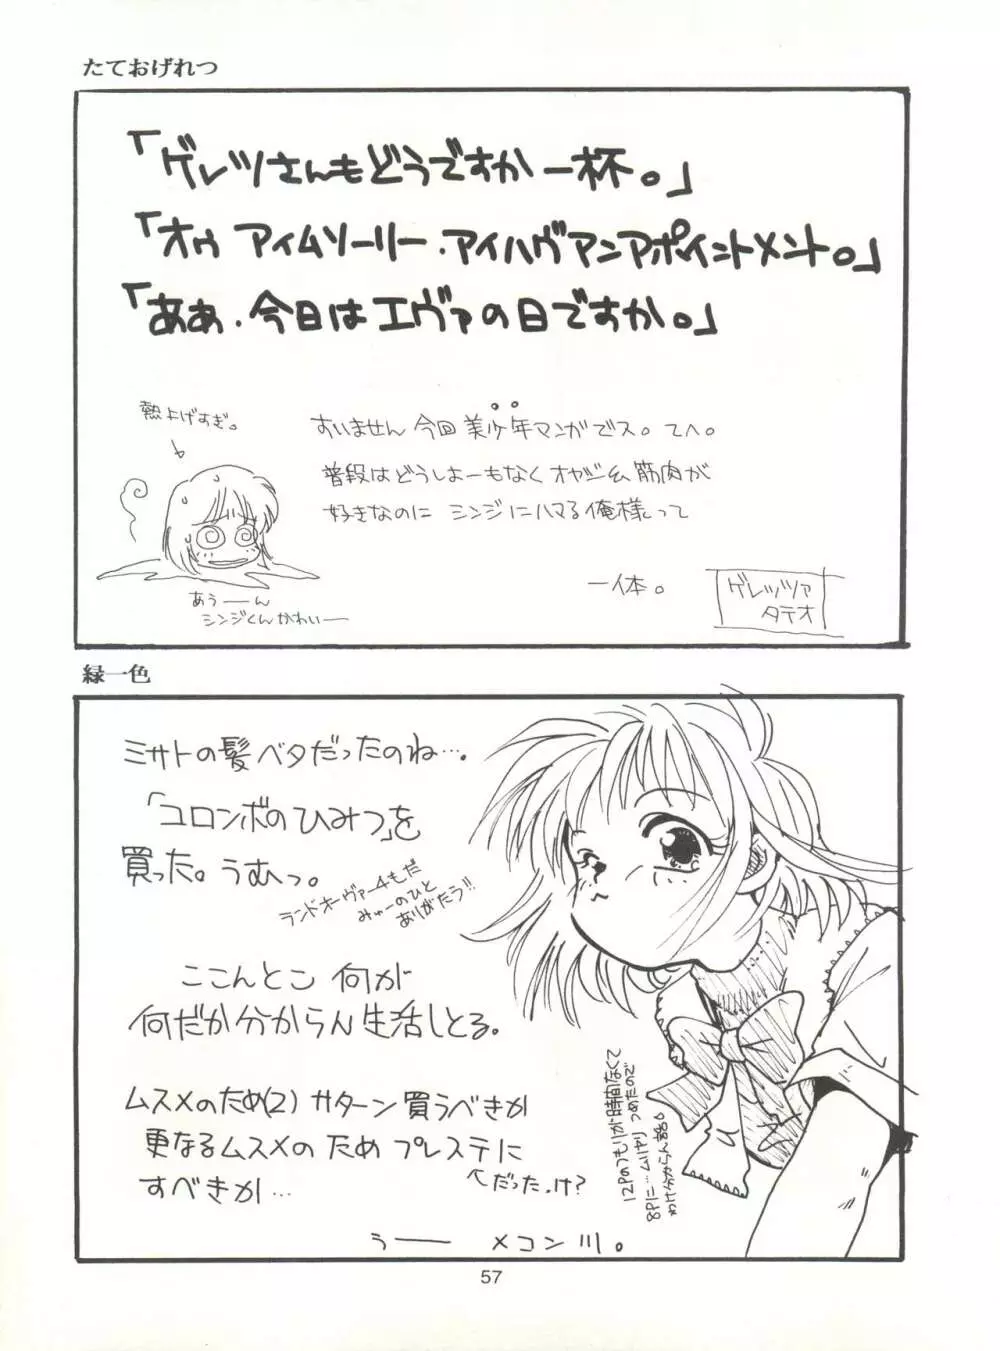 たておげれつ
「ゲレツさんもどうですか一杯。」
「オゥ アイムソーリー．アイハヴアンアポイントメント。」
「ああ．今日はエヴァの日ですか。」
熱上げすぎ。
すいません 今回 美少年マンガでス。てへ。
普段はどうしよーもなく オヤジ&筋肉が
好きなのに シンジにハマる俺様って
一体。
あぅーーん
シンジくんかわいー
ゲレッツァ
タテオ
緑一色
ミサトの髪ベタだったのね…。
「コロンボのひみつ」を
買った。うむっ。
ランドオーヴァー4もだ
みゅーのひと
ありがたう!!
ここんとこ 何が
何だか分からん生活しとる。
12Pのつもりが時間なくて
8Pに…ムリヤリ つめたので
わけ分からん話。
ムスメのため(2) サターン買うべきか
更なるムスメの ため プレステに
すべきか…
へだったっけ?
うーー メコン川。
57